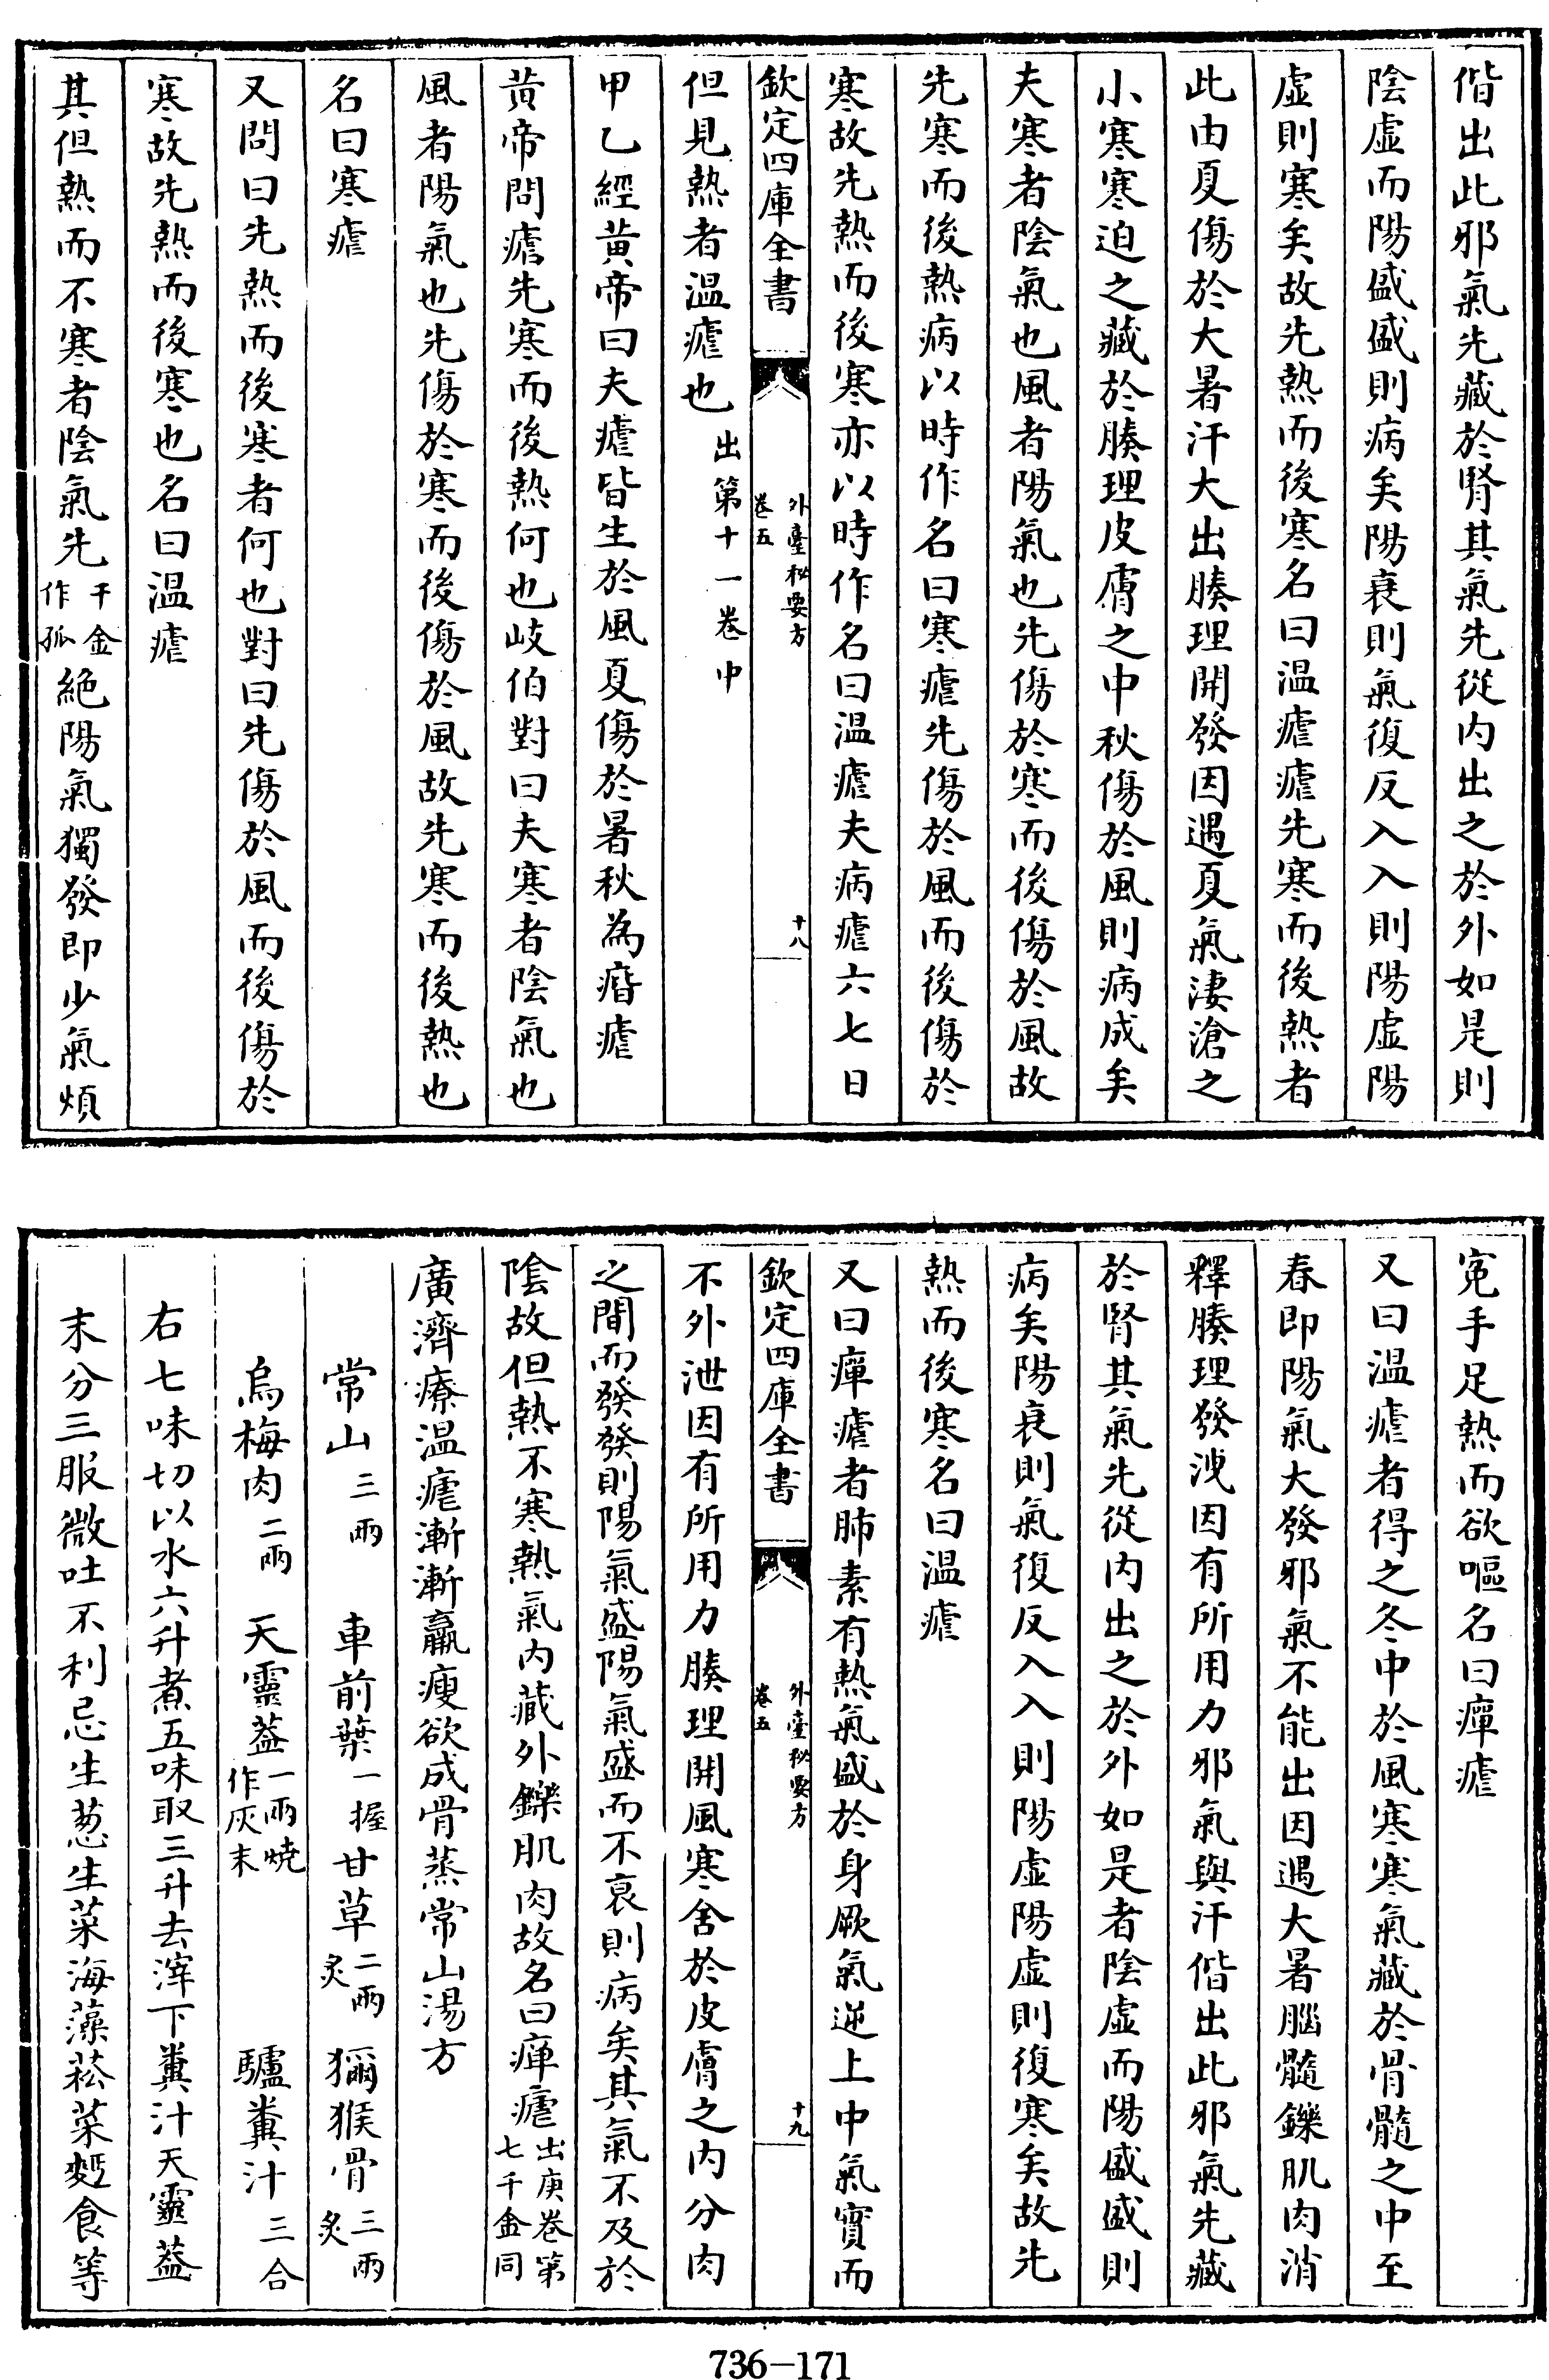 偕出此邪氣先藏於腎其氣先從内出之於外如是則
陰虛而陽盛盛則病矣陽衰則氣復反入入則陽虛陽
虛則寒矣故先熱而後寒名曰温瘧瘧先寒而後熱者
此由夏傷於大暑汗大出腠理開發因遇夏氣淒滄之
小寒寒迫之藏於腠理皮膚之中秋傷於風則病成矣
夫寒者陰氣也風者陽氣也先傷於寒而後傷於風故
先寒而後熱病以時作名曰寒瘧先傷於風而後傷於
寒故先熱而後寒亦以時作名曰温瘧夫病瘧六七日
欽定四庫全書
外臺秘要方
卷五
十八
但見熱者温瘧也出第十一卷中
甲乙經黄帝曰夫瘧皆生於風夏傷於暑秋為痎瘧
黄帝問瘧先寒而後熱何也岐伯對曰夫寒者陰氣也
風者陽氣也先傷於寒而後傷於風故先寒而後熱也
名曰寒瘧
又問曰先熱而後寒者何也對曰先傷於風而後傷於
寒故先熱而後寒也名曰温瘧
其但熱而不寒者陰氣先千金作孤絶陽氣獨發即少氣煩
寃手足熱而欲嘔名曰癉瘧
又曰温瘧者得之冬中於風寒寒氣藏於骨髓之中至
春即陽氣大發邪氣不能出因遇大暑腦髓鑠肌肉消
釋腠理發洩因有所用力邪氣與汗偕出此邪氣先藏
於腎其氣先從内出之於外如是者陰虛而陽盛盛則
病矣陽衰則氣復反入入則陽虛陽虛則復寒矣故先
熱而後寒名曰温瘧
又曰癉瘧者肺素有熱氣盛於身厥氣逆上中氣實而
欽定四庫全書
外臺秘要方
卷五
十九
不外泄因有所用力腠理開風寒舍於皮膚之内分肉
之間而發發則陽氣盛陽氣盛而不衰則病矣其氣不及於
陰故但熱不寒熱氣内藏外鑠肌肉故名曰癉瘧出庚卷第七千金同
廣濟療温瘧漸漸羸瘦欲成骨蒸常山湯方
常山三兩 車前葉一握 甘草二兩炙 獼猴骨三兩炙
烏梅肉二兩 天靈葢一兩燒作灰末 驢糞汁三合
右七味切以水六升煮五味取三升去滓下糞汁天靈葢
末分三服微吐不利忌生葱生菜海藻菘菜麪食等
736-171